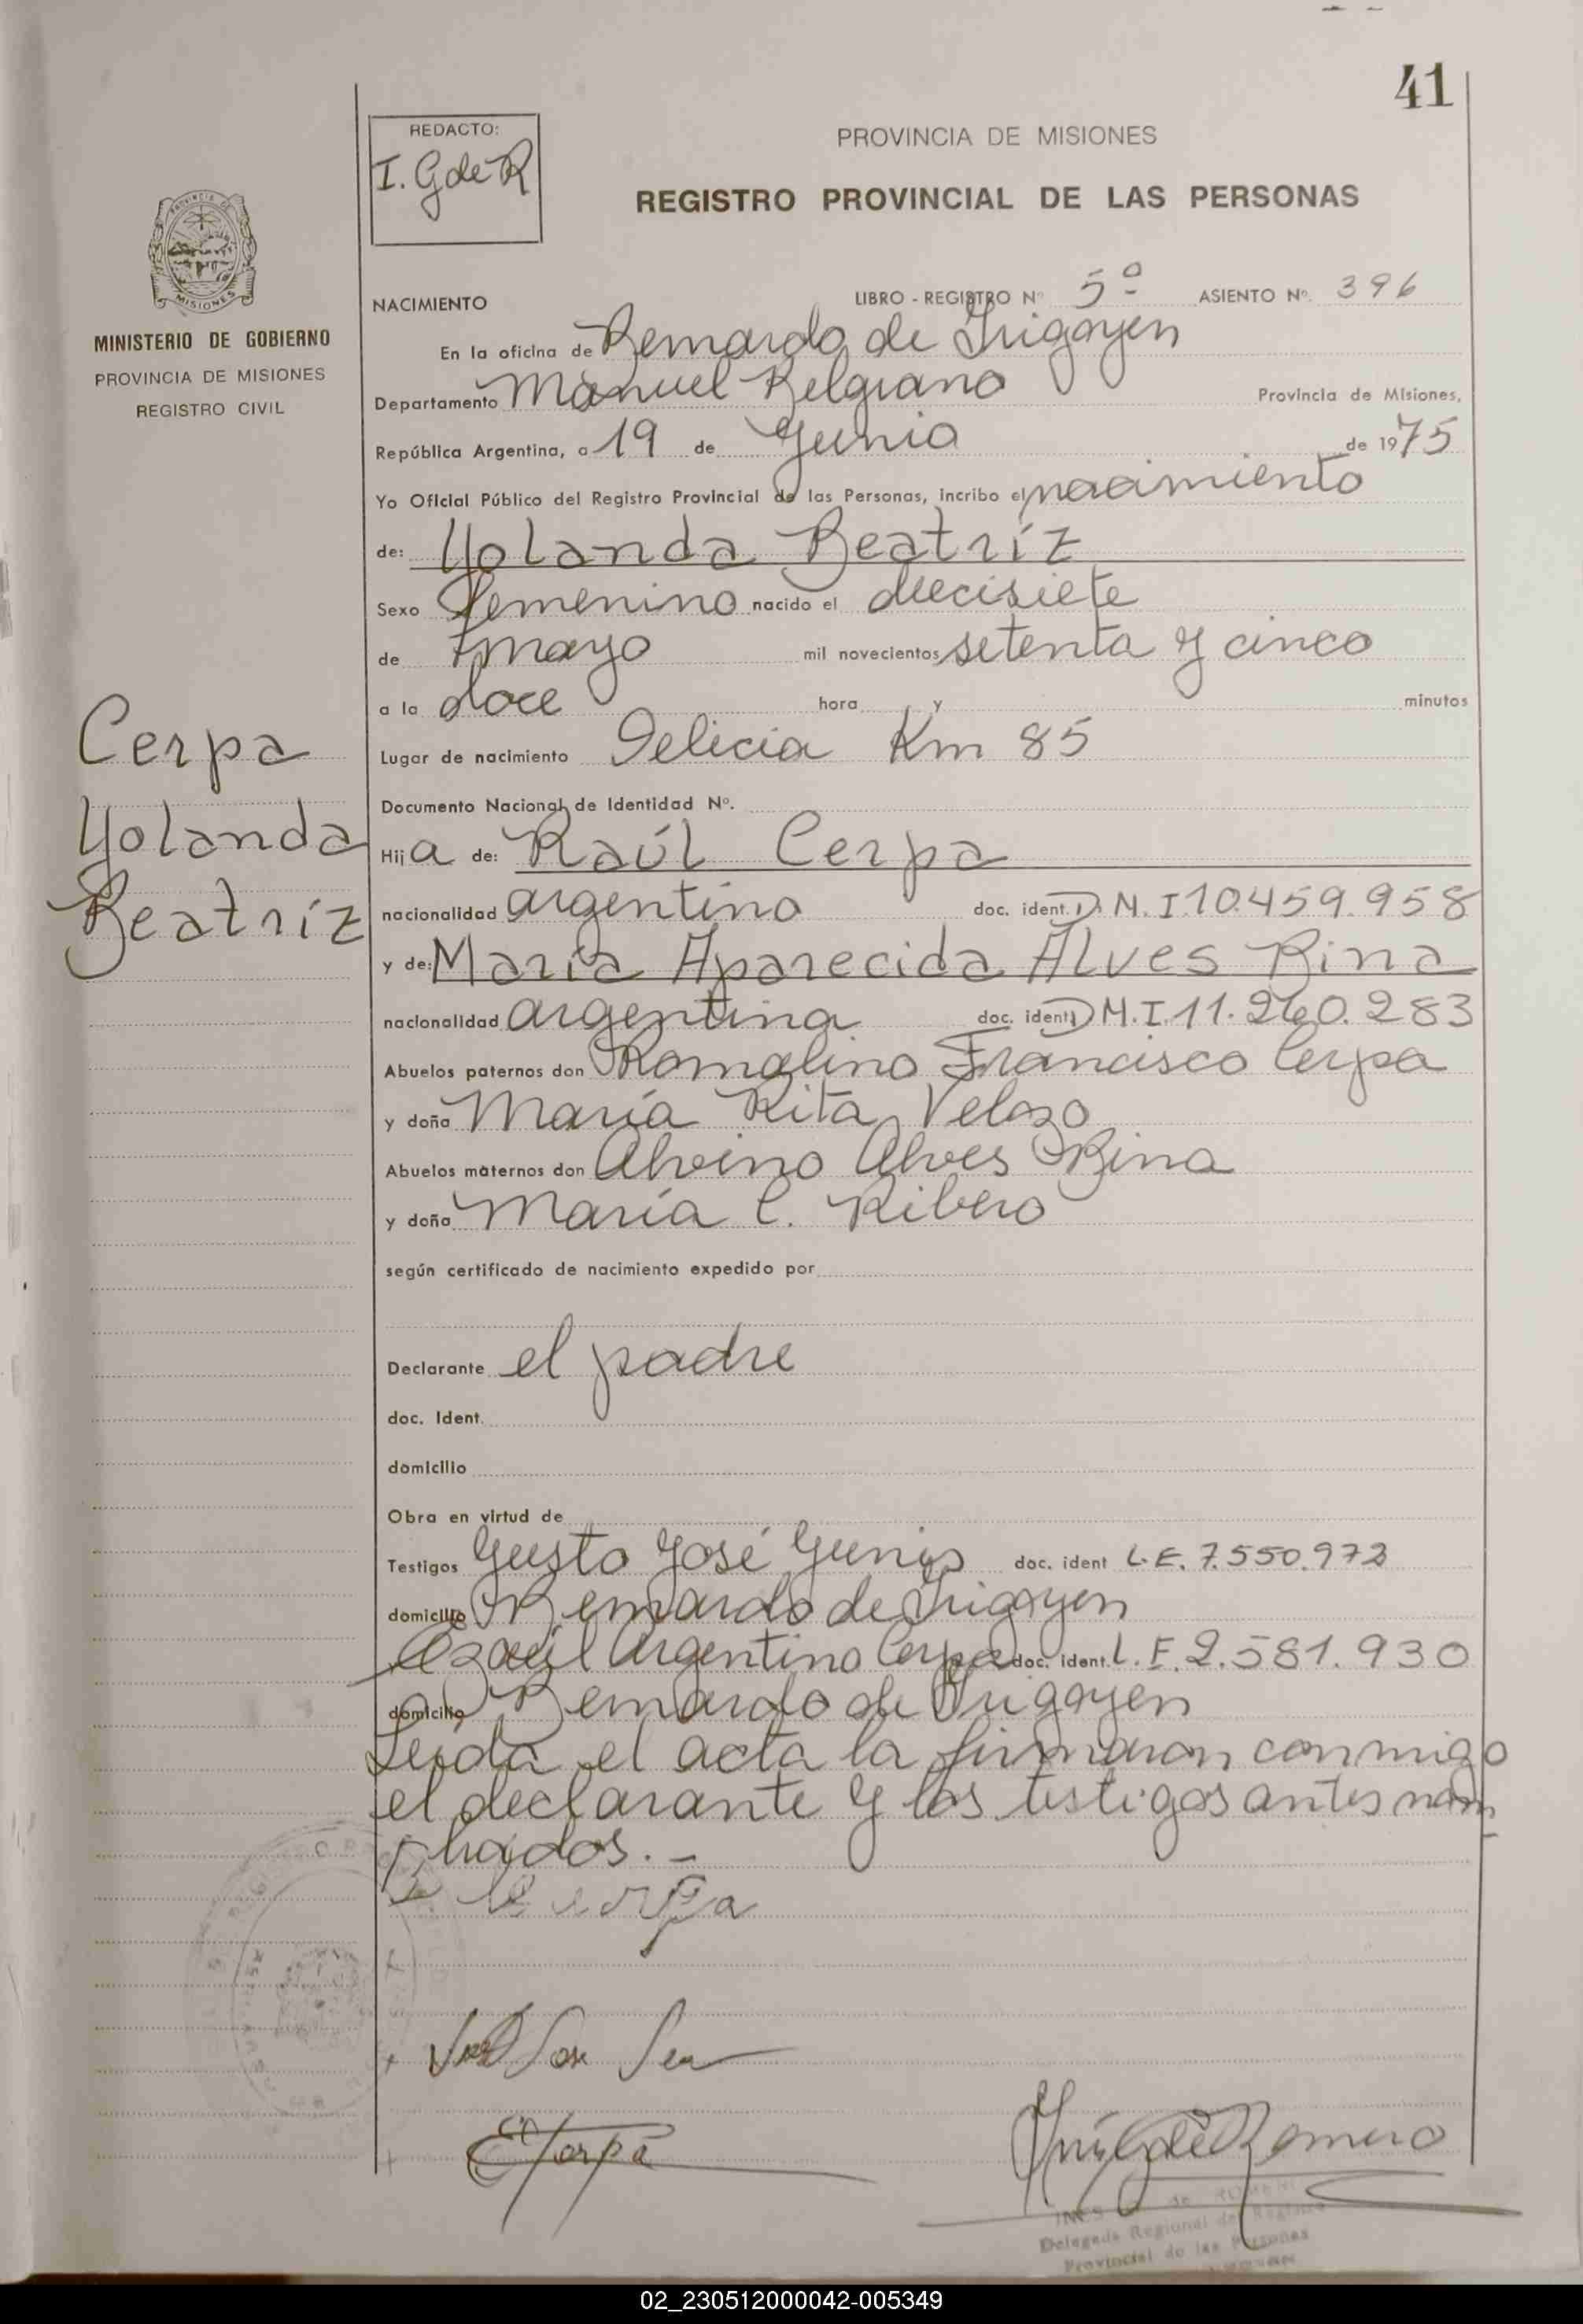 41
REDACTO:
I. G de R
PROVINCIA DE MISIONES
REGISTRO PROVINCIAL DE LAS PERSONAS
MISIONES
MINISTERIO DE GOBIERNO
PROVINCIA DE MISIONES
REGISTRO CIVIL
NACIMIENTO LIBRO - REGISTRO Nº 5º ASIENTO Nº. 396
En la oficina de Bernardo de Irigoyen
Departamento Manuel Belgrano Provincia de Misiones,
República Argentina, a 19 de Junio de 1975
Yo Oficial Público del Registro Provincial de las Personas, incribo el nacimiento
de: Yolanda Beatríz
Sexo femenino nacido el diecisiete
de mayo mil novecientos setenta y cinco
a la doce hora y minutos
Lugar de nacimiento Delicia Km 85
Cerpa
Yolanda
Beatríz
Documento Nacional de Identidad Nº.
Hija de: Raúl Cerpa
nacionalidad argentino doc. ident. D.N.I. 10.459.958
y de: María Aparecida Alves Bina
nacionalidad argentina doc. ident D.N.I. 11.260.283
Abuelos paternos don Romalino Francisco Cerpa
y doña María Rita Velozo
Abuelos maternos don Alvino Alves Bina
y doña María C. Ribero
según certificado de nacimiento expedido por
Declarante el padre
doc. Ident.
domicilio
Obra en virtud de
Testigos Justo José doc. ident L.E. 7.550.972
domicilio Bernardo de Irigoyen
Argentino Cerpa doc. ident. L.E. 2.581.930
domicilio Bernardo de Irigoyen
Leída el acta la firmaron conmigo
el declarante y los testigos antes nom
brados. -
Cerpa
Romero
INES de ROMERO
Delegada Regional del Registro
Provincial de las Personas
02_230512000042-005349